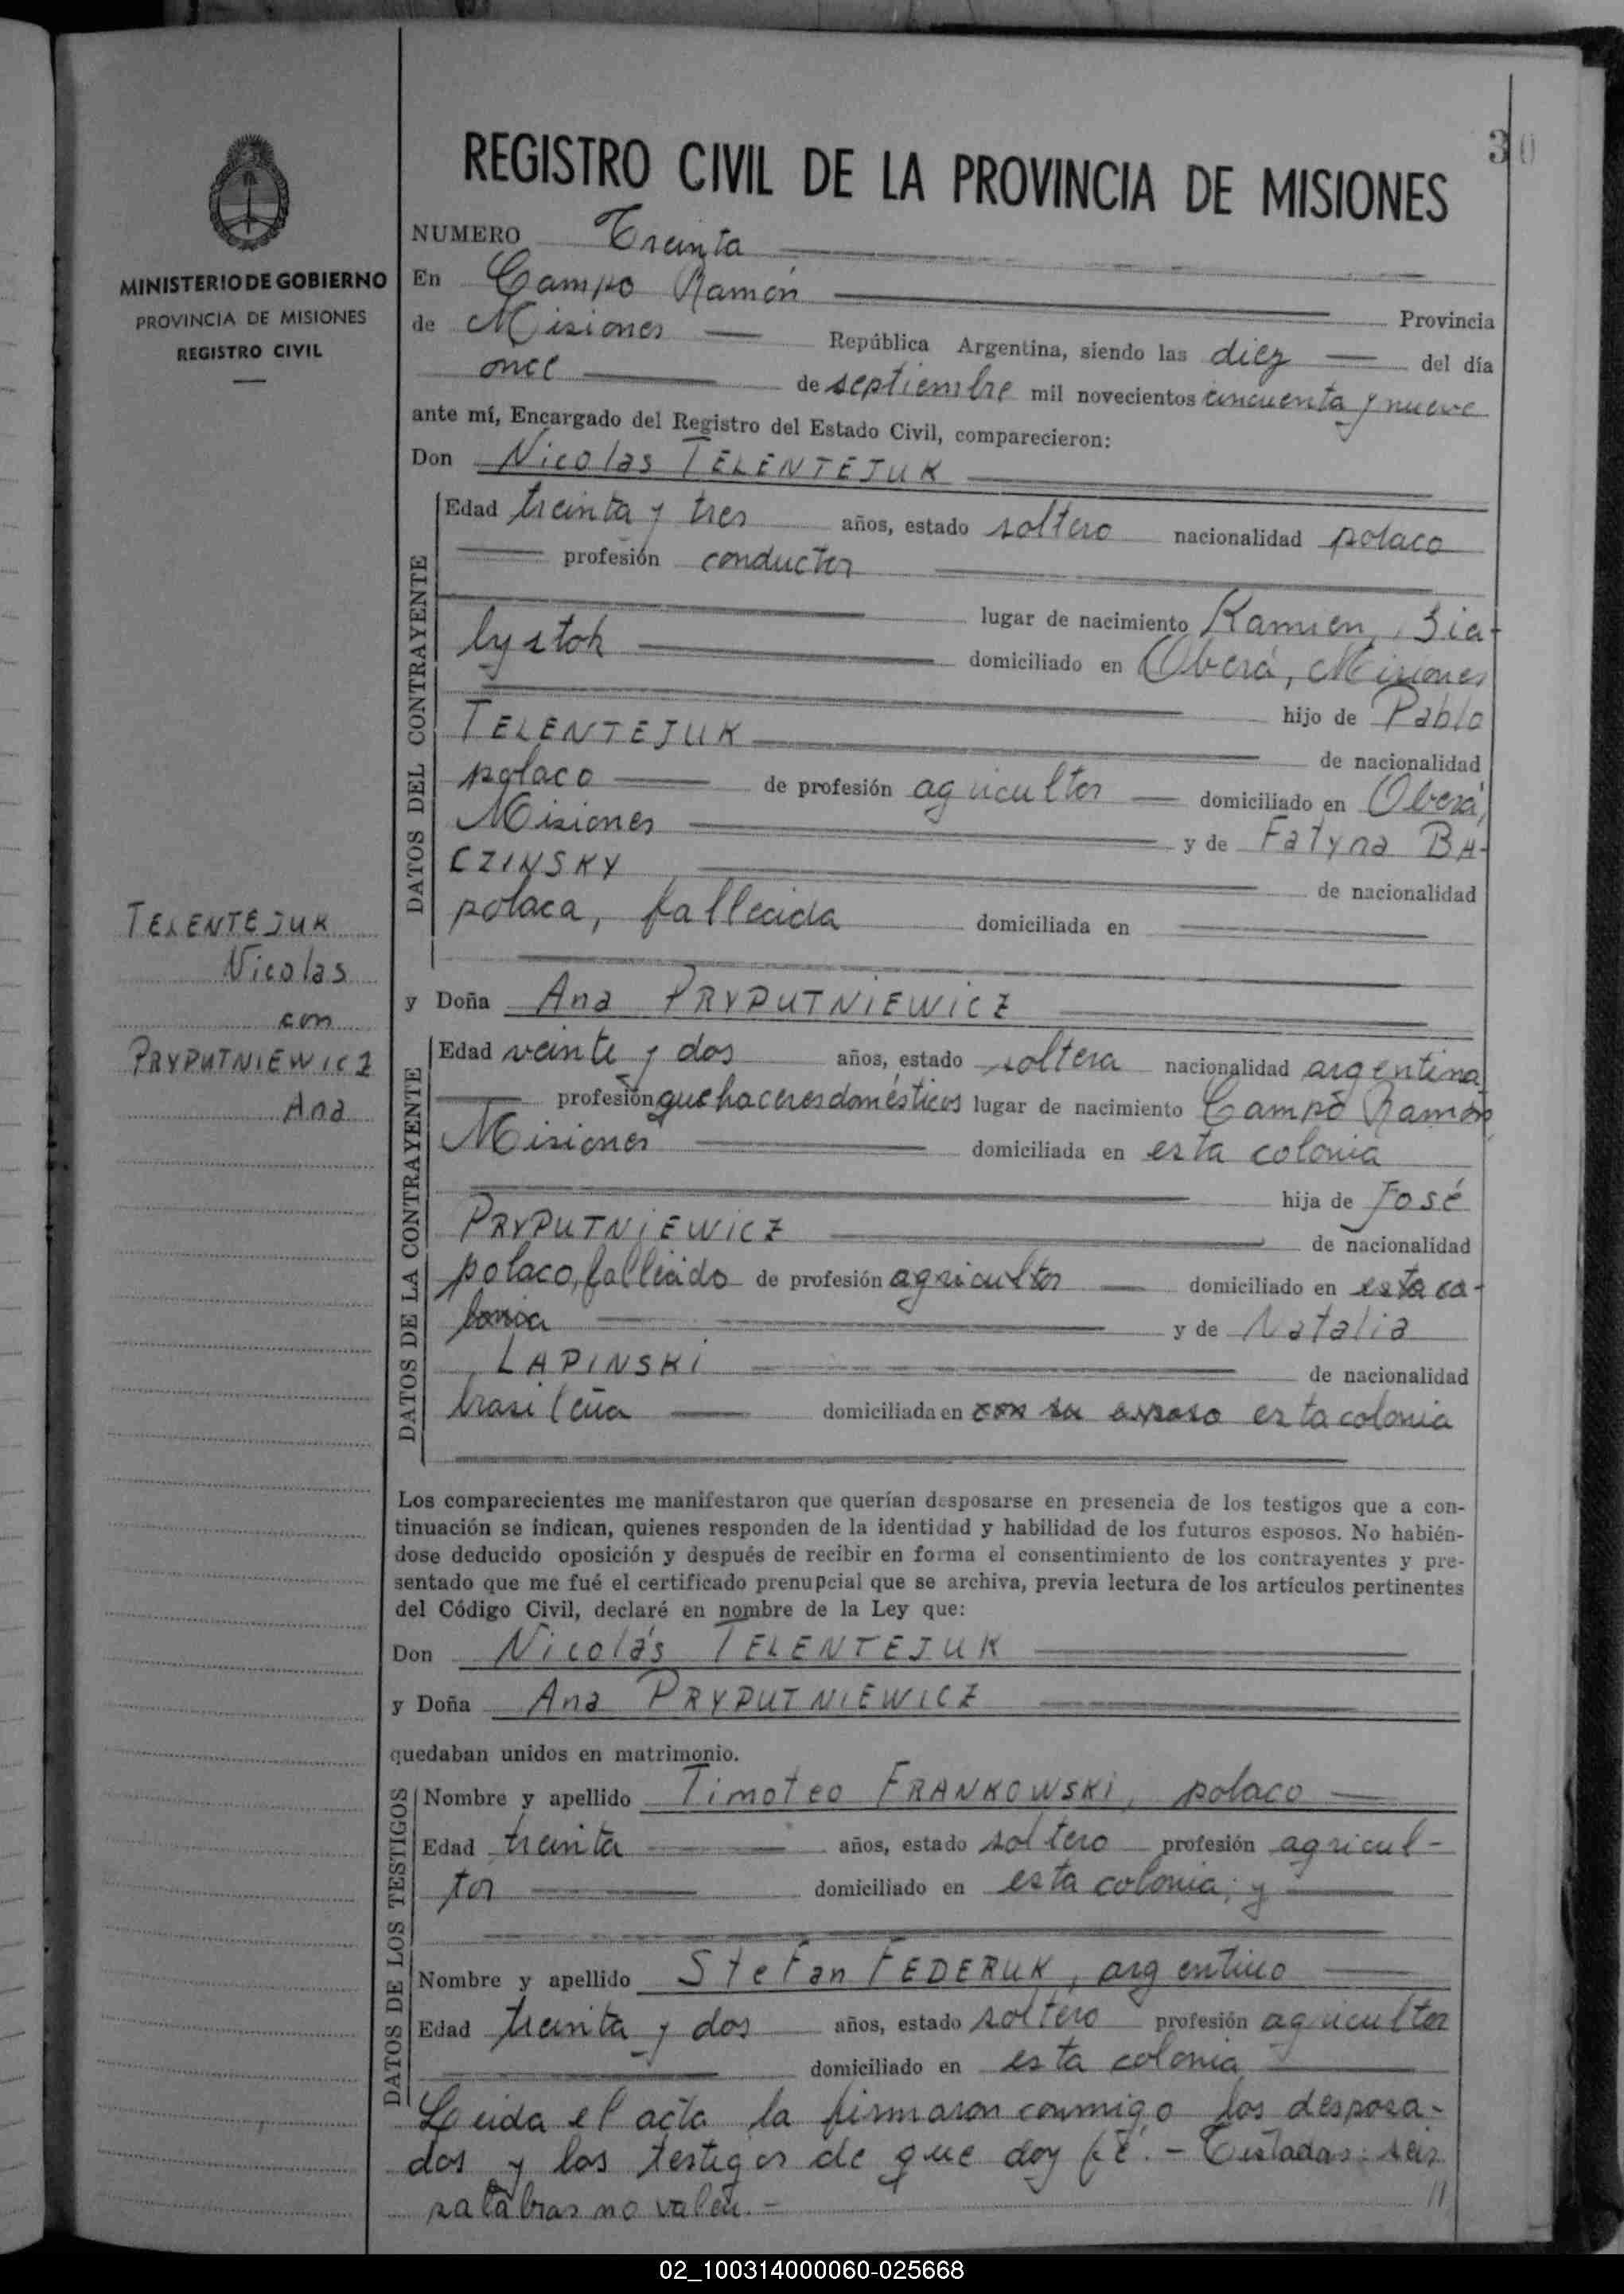 30
REGISTRO CIVIL DE LA PROVINCIA DE MISIONES
MINISTERIO DE GOBIERNO
PROVINCIA DE MISIONES
REGISTRO CIVIL
NUMERO Treinta
En Campo Ramón Provincia
de Misiones República Argentina, siendo las diez del día
once de septiembre mil novecientos cincuenta y nueve
ante mí, Encargado del Registro del Estado Civil, comparecieron:
Don Nicolas TELENTEJUK
DATOS DEL CONTRAYENTE
Edad treinta y tres años, estado soltero nacionalidad polaco
profesión conductor
lugar de nacimiento Kamien, Bia-
lystok domiciliado en Oberá, Misiones
hijo de Pablo
TELENTEJUK de nacionalidad
polaco de profesión agricultor domiciliado en Oberá,
Misiones y de Fatyna BU-
CZINSKY de nacionalidad
polaca, fallecida domiciliada en
TELENTEJUK
Nicolas
con
PRYPUTNIEWICZ
Ana
y Doña Ana PRYPUTNIEWICZ
DATOS DE LA CONTRAYENTE
Edad veinte y dos años, estado soltera nacionalidad argentina
profesión quehaceres domésticos lugar de nacimiento Campo Ramón
Misiones domiciliada en esta colonia
hija de José
PRYPUTNIEWICZ de nacionalidad
polaco, fallecido de profesión agricultor domiciliado en esta co-
lonia y de Natalia
LAPINSKI de nacionalidad
brasileña domiciliada en con su esposo esta colonia
Los comparecientes me manifestaron que querían desposarse en presencia de los testigos que a con-
tinuación se indican, quienes responden de la identidad y habilidad de los futuros esposos. No habién-
dose deducido oposición y después de recibir en forma el consentimiento de los contrayentes y pre-
sentado que me fué el certificado prenupcial que se archiva, previa lectura de los artículos pertinentes
del Código Civil, declaré en nombre de la Ley que:
Don Nicolás TELENTEJUK
y Doña Ana PRYPUTNIEWICZ
quedaban unidos en matrimonio.
DATOS DE LOS TESTIGOS
Nombre y apellido Timoteo FRANKOWSKI, polaco
Edad treinta años, estado soltero profesión agricul-
tor domiciliado en esta colonia; y
Nombre y apellido Stefan FEDERUK, argentino
Edad treinta y dos años, estado soltero profesión agricultor
domiciliado en esta colonia
Leida el acta la firmaron conmigo los desposa-
dos y los testigos de que doy fé. - Testadas: seis
palabras no valen. - //
02_100314000060-025668